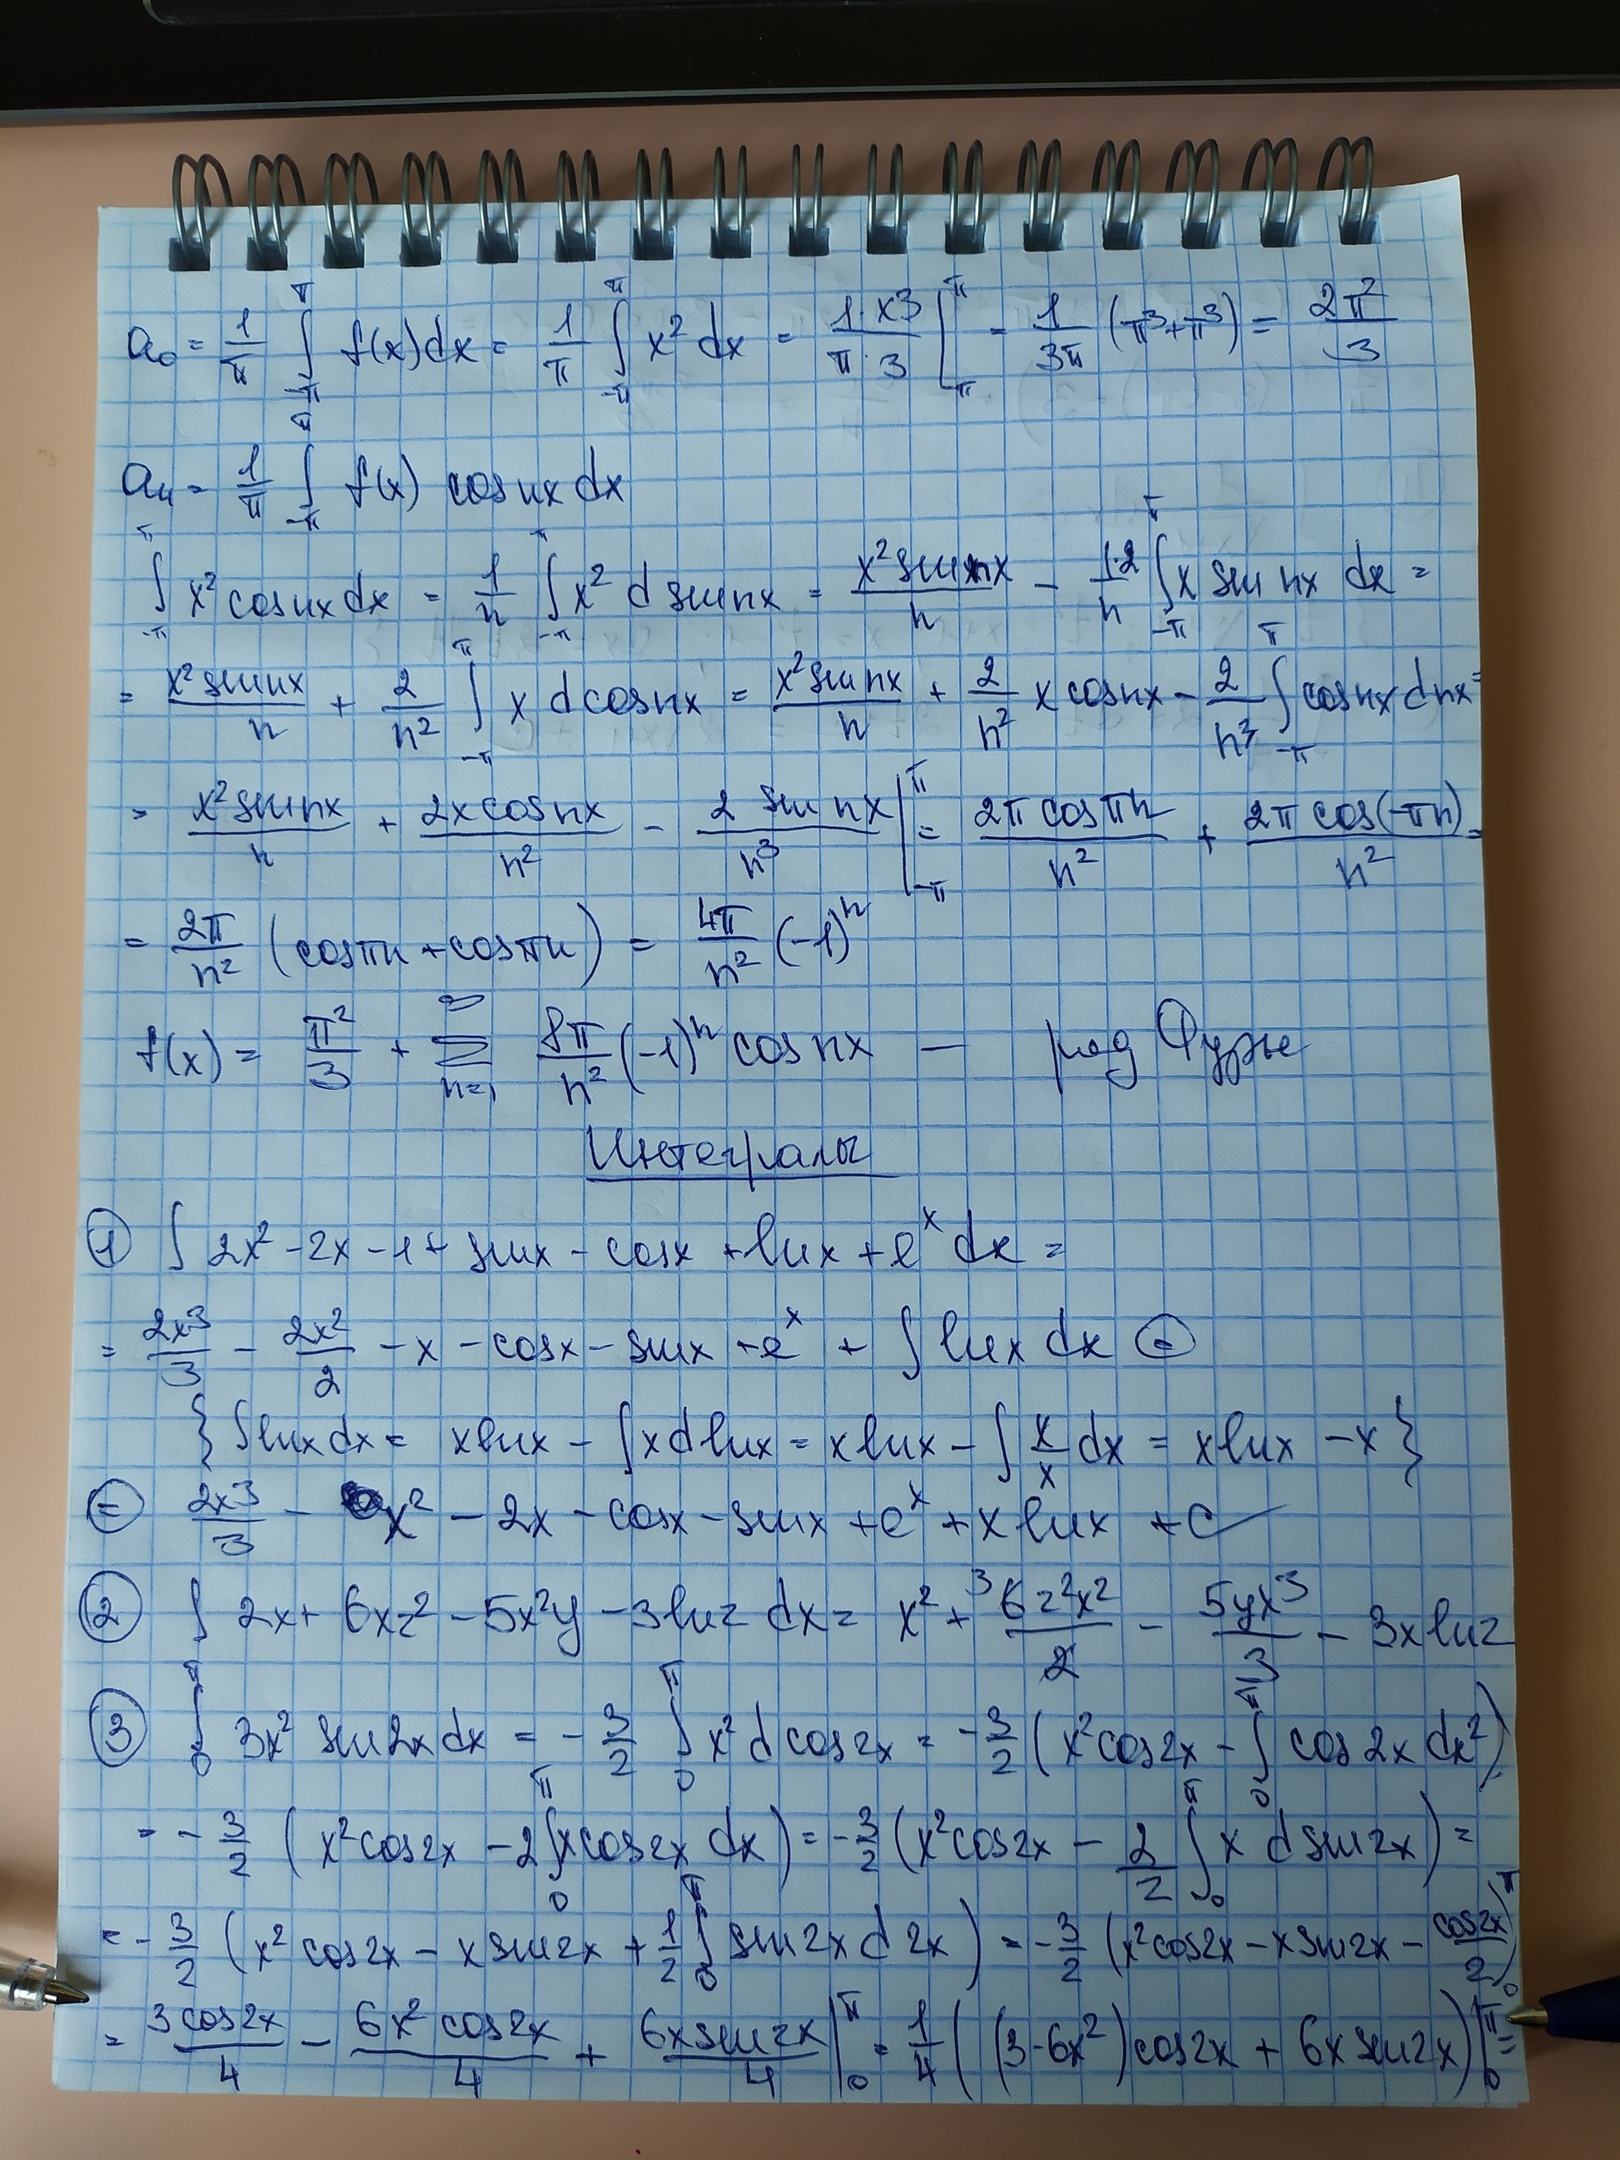 a₀ = 1/π ∫_{-π}^{π} f(x)dx = 1/π ∫_{-π}^{π} x² dx = (1·x3)/(π·3) |_{-π}^{π} = 1/(3π) (π³+π³) = 2π²/3
aₙ = 1/π ∫_{-π}^{π} f(x) cos nx dx
∫_{-π}^{π} x² cos nx dx = 1/n ∫_{-π}^{π} x² d sin nx = (x² sin nx)/n - (1·2)/n ∫_{-π}^{π} x sin nx dx =
= (x² sin nx)/n + 2/n² ∫_{-π}^{π} x d cos nx = (x² sin nx)/n + 2/n² x cos nx - 2/n³ ∫_{-π}^{π} cos nx dnx =
= (x² sin nx)/n + (2x cos nx)/n² - (2 sin nx)/n³ |_{-π}^{π} = (2π cos πn)/n² + (2π cos(-πn))/n² =
= 2π/n² (cos πn + cos πn) = 4π/n² (-1)ⁿ
f(x) = π²/3 + Σ_{n=1}^{∞} 8π/n² (-1)ⁿ cos nx — ряд Фурье
Интегралы
① ∫ 2x² - 2x - 1 + sin x - cos x + ln x + eˣ dx =
= 2x³/3 - 2x²/2 - x - cos x - sin x + eˣ + ∫ ln x dx ⊜
{ ∫ ln x dx = x ln x - ∫ x d ln x = x ln x - ∫ x/x dx = x ln x - x }
⊜ 2x³/3 - x² - 2x - cos x - sin x + eˣ + x ln x + C
② ∫ 2x + 6xz² - 5x²y - 3 ln z dx = x² + ³6z²x²/2 - 5yx³/3 - 3x ln z
③ ∫_{0}^{π} 3x² sin 2x dx = -3/2 ∫_{0}^{π} x² d cos 2x = -3/2 (x² cos 2x - ∫_{0}^{π} cos 2x dx²)
= -3/2 (x² cos 2x - 2 ∫_{0}^{π} x cos 2x dx) = -3/2 (x² cos 2x - 2/2 ∫_{0}^{π} x d sin 2x) =
= -3/2 (x² cos 2x - x sin 2x + 1/2 ∫_{0}^{π} sin 2x d 2x) = -3/2 (x² cos 2x - x sin 2x - (cos 2x)/2)_{0}^{π}
= (3 cos 2x)/4 - (6x² cos 2x)/4 + (6x sin 2x)/4 |_{0}^{π} = 1/4 ((3-6x²) cos 2x + 6x sin 2x) |_{0}^{π} =